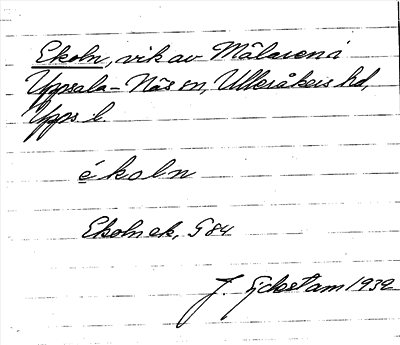 Ekoln, vik av Mälaren i
Uppsala-Näs sn, Ulleråkers hd,
Upps l.
ékoln
Ekoln ek, S 84
J. 1932